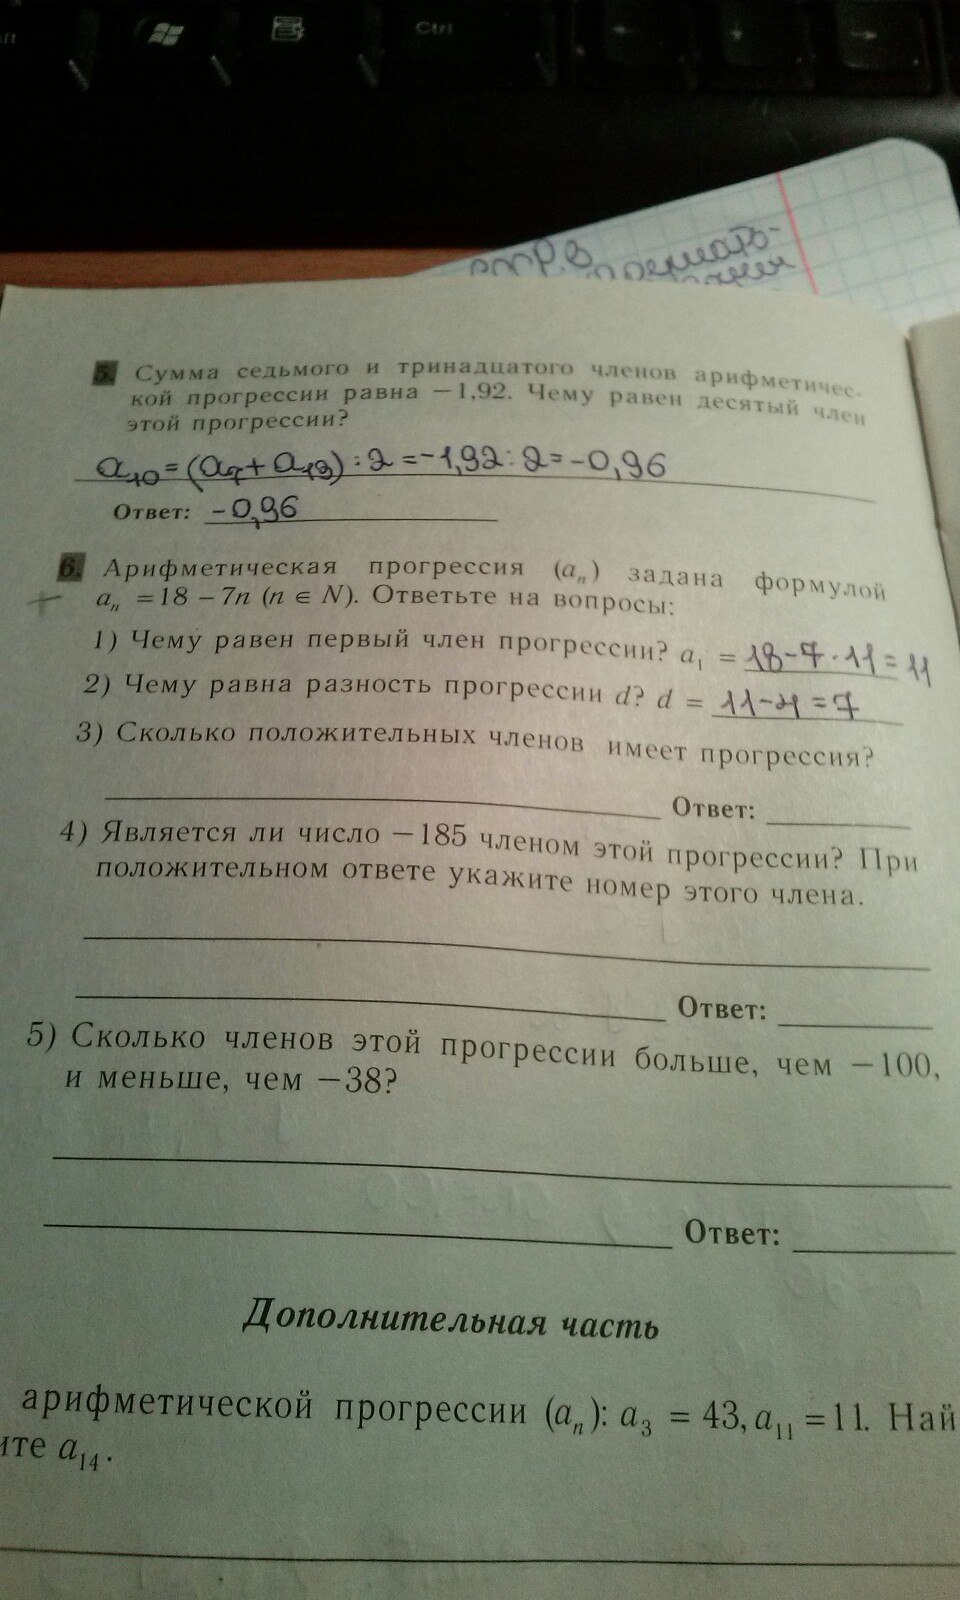 Ctrl
стр.8
5. Сумма седьмого и тринадцатого членов арифметичес-
кой прогрессии равна −1,92. Чему равен десятый член
этой прогрессии?
a₁₀=(a₇+a₁₃):2=−1,92:2=−0,96
Ответ: −0,96
6. Арифметическая прогрессия (aₙ) задана формулой
aₙ = 18 − 7n (n ∈ N). Ответьте на вопросы:
1) Чему равен первый член прогрессии? a₁ = 18−7·11=11
2) Чему равна разность прогрессии d? d = 11−4=7
3) Сколько положительных членов имеет прогрессия?
Ответ:
4) Является ли число −185 членом этой прогрессии? При
положительном ответе укажите номер этого члена.
Ответ:
5) Сколько членов этой прогрессии больше, чем −100,
и меньше, чем −38?
Ответ:
Дополнительная часть
арифметической прогрессии (aₙ): a₃ = 43, a₁₁ = 11. Най
ите a₁₄.